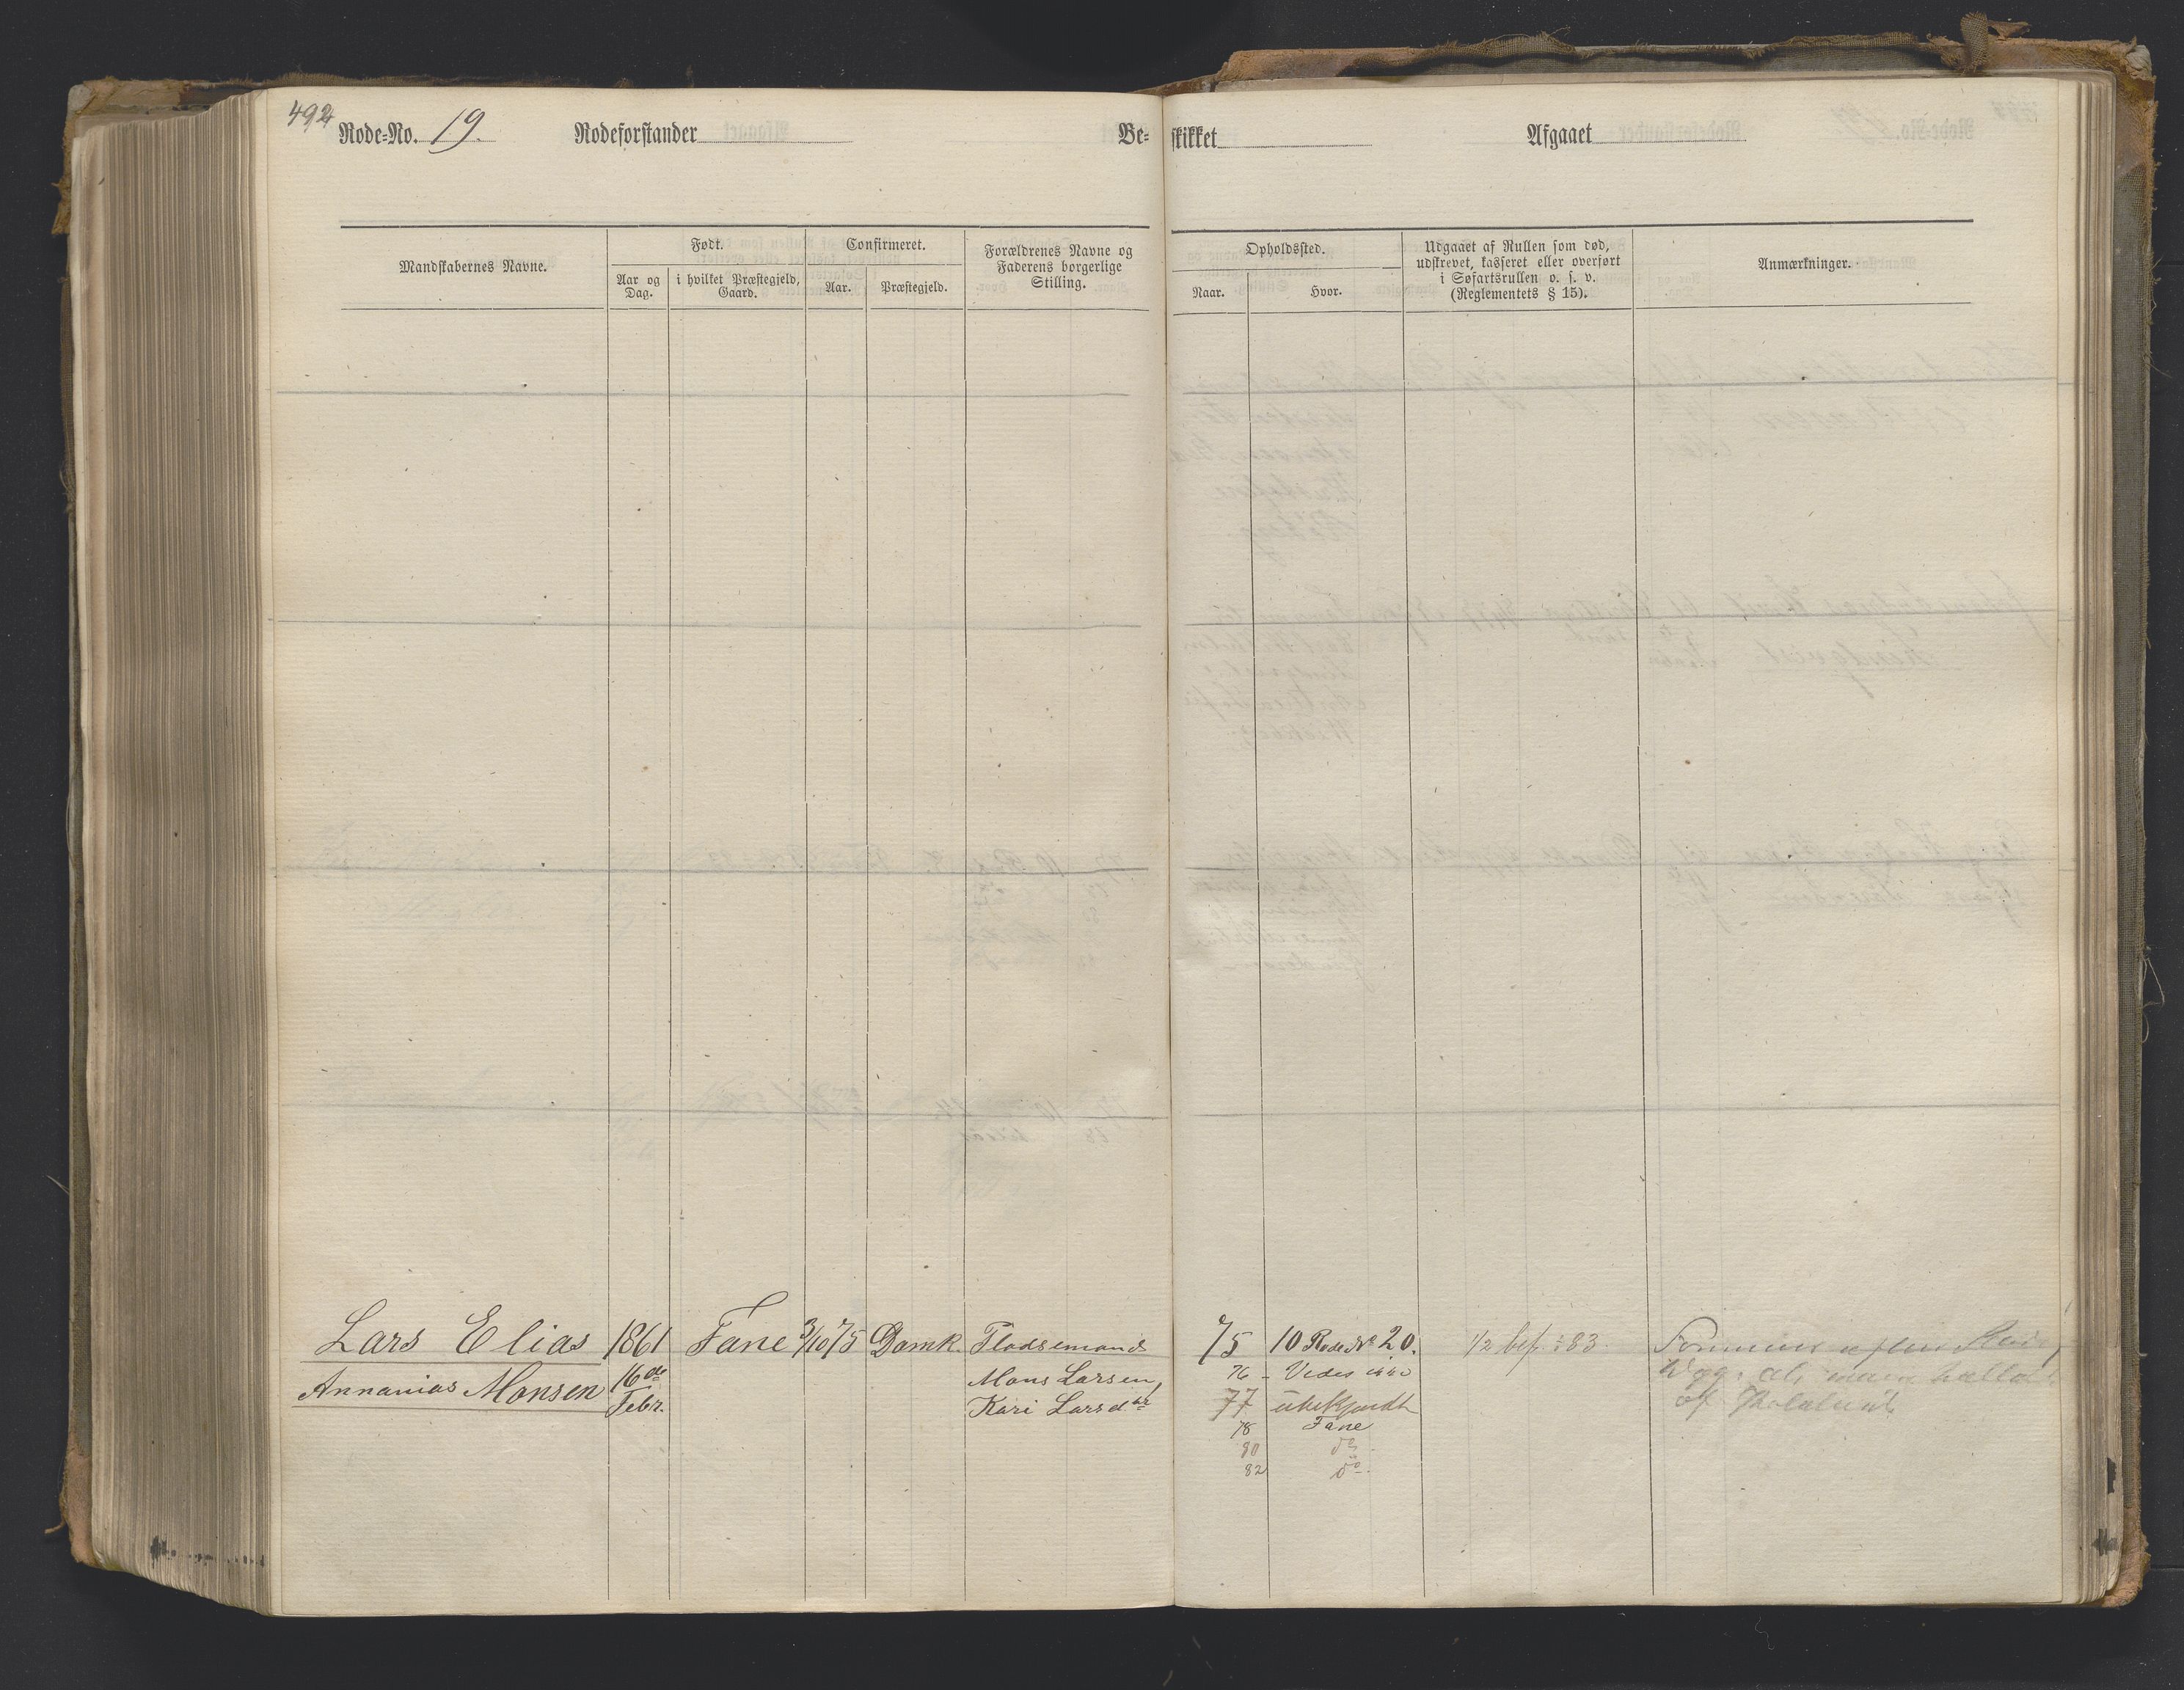 492
Rode=No. 19. Rodeforstander Be=
skikket Afgaaet
Mandskabernes Navne.
Født.
Aar og
Dag.
i hvilket Præstegjeld,
Gaard.
Confirmeret.
Aar.
Præstegjeld.
Forældrenes Navne og
Faderens borgerlige
Stilling.
Opholdssted.
Naar.
Hvor.
Udgaaet af Rullen som død,
udskrevet, kasseret eller overført
i Søfartsrullen o. s. v.
(Reglementets § 15).
Anmærkninger.
Lars Elias
Annanias Monsen
1861
16de
Febr.
Fane
3/10 75
Domk.
Pladsemand
Mons Larsen,
Kari Larsdtr
75 10 Rode No 20.
76 - Vides ikke
77 ubekjendt
78 Fane
80 do.
82 do.
1/2 bef. 83.
af